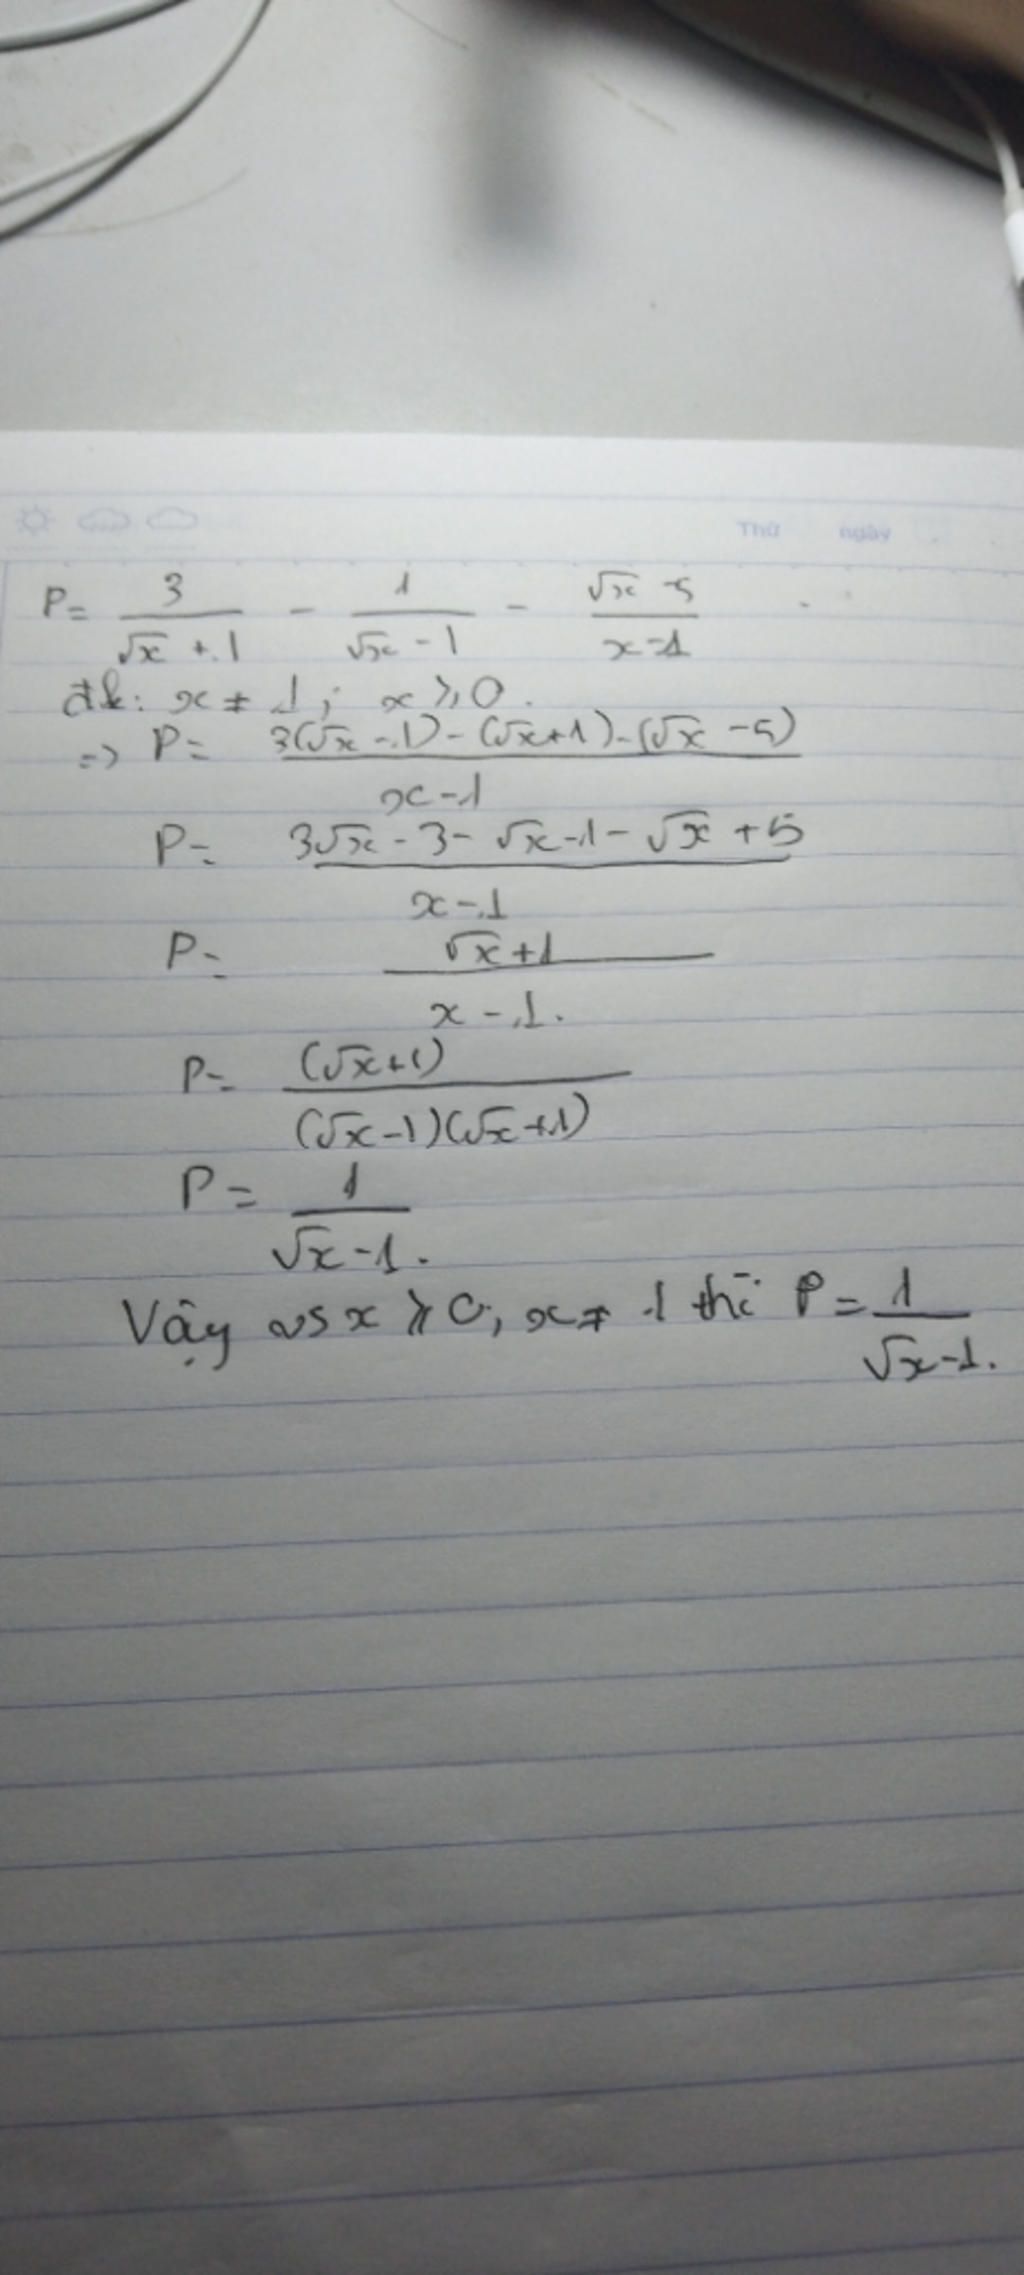 Thứ ngày
P = \frac{3}{\sqrt{x} + 1} - \frac{1}{\sqrt{x} - 1} - \frac{\sqrt{x} - 5}{x - 1}
đk: x ≠ 1; x ⩾ 0.
=> P = \frac{3(\sqrt{x} - 1) - (\sqrt{x} + 1) - (\sqrt{x} - 5)}{x - 1}
P = \frac{3\sqrt{x} - 3 - \sqrt{x} - 1 - \sqrt{x} + 5}{x - 1}
P = \frac{\sqrt{x} + 1}{x - 1}.
P = \frac{(\sqrt{x} + 1)}{(\sqrt{x} - 1)(\sqrt{x} + 1)}
P = \frac{1}{\sqrt{x} - 1}.
Vậy vs x ⩾ 0; x ≠ 1 thì P = \frac{1}{\sqrt{x} - 1}.